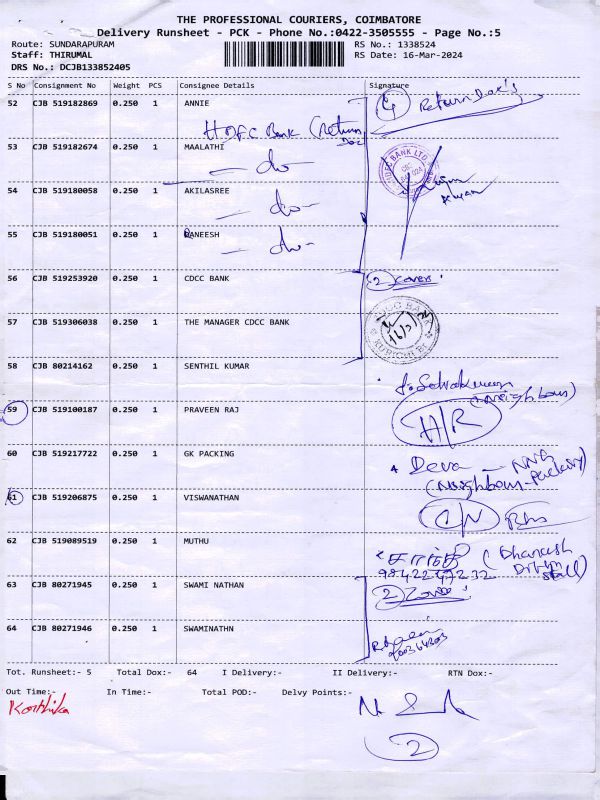 THE PROFESSIONAL COURIERS, COIMBATORE
Delivery Runsheet - PCK - Phone No.:0422-3505555 - Page No.:5
Route: SUNDARAPURAM RS No.: 1338524
Staff: THIRUMAL RS Date: 16-Mar-2024
DRS No.: DCJB133852405
S No Consignment No Weight PCS Consignee Details Signature
52 CJB 519182869 0.250 1 ANNIE 4 Return Doc's
HDFC Bank (Return Doc
53 CJB 519182674 0.250 1 MAALATHI
— do —
54 CJB 519180058 0.250 1 AKILASREE
— do —
55 CJB 519180051 0.250 1 RANEESH
— do —
56 CJB 519253920 0.250 1 CDCC BANK 2 covers
57 CJB 519306038 0.250 1 THE MANAGER CDCC BANK
58 CJB 80214162 0.250 1 SENTHIL KUMAR
(Neighbour)
59 CJB 519100187 0.250 1 PRAVEEN RAJ H/R
60 CJB 519217722 0.250 1 GK PACKING Deva —
(Neighbour-Packing)
61 CJB 519206875 0.250 1 VISWANATHAN
62 CJB 519089519 0.250 1 MUTHU
63 CJB 80271945 0.250 1 SWAMI NATHAN 2
64 CJB 80271946 0.250 1 SWAMINATHN
Tot. Runsheet:- 5 Total Dox:- 64 I Delivery:- II Delivery:- RTN Dox:-
Out Time:- In Time:- Total POD:- Delvy Points:-
Karthika
2